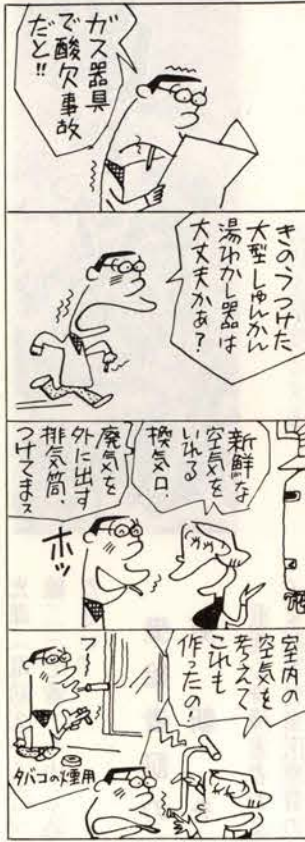 ガス器具
で酸欠事故
だと!!
きのうつけた
大型しゅんかん
湯わかし器は
大丈夫かぁ?
新鮮な
空気を
いれる
換気口、
廃気を
外に出す
排気筒、
つけてまス
ホッ
室内の
空気を
考えて
これも
作ったの!
フー
タバコの煙用